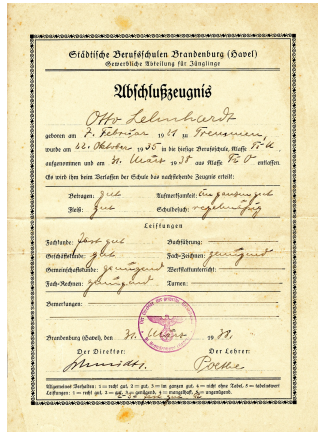 Städtische Berufsschulen Brandenburg (Havel)
Gewerbliche Abteilung für Jünglinge
Abschlußzeugnis
Otto Lehnhardt
geboren am 7. Februar 1921 zu Tremmen,
wurde am 22. Oktober 1935 in die hiesige Berufsschule, Klasse
aufgenommen und am 31. März 1938 aus Klasse entlassen.
Es wird ihm beim Verlassen der Schule das nachstehende Zeugnis erteilt:
Betragen: gut Aufmerksamkeit: Im ganzen gut
Fleiß: gut Schulbesuch: regelmäßig
Leistungen
Fachkunde: fast gut Buchführung:
Geschäftskunde: gut Fach-Zeichnen: genügend
Gemeinschaftskunde: genügend Werkstattunterricht:
Fach-Rechnen: genügend Turnen:
Bemerkungen:
Brandenburg (Havel), den 31. März 1938.
Der Direktor: Der Lehrer:
Schmidt
Allgemeines Verhalten: 1 = recht gut, 2 = gut, 3 = im ganzen gut, 4 = nicht ohne Tadel, 5 = tadelnswert
Leistungen: 1 = recht gut, 2 = gut, 3 = genügend, 4 = mangelhaft, 5 = ungenügend.